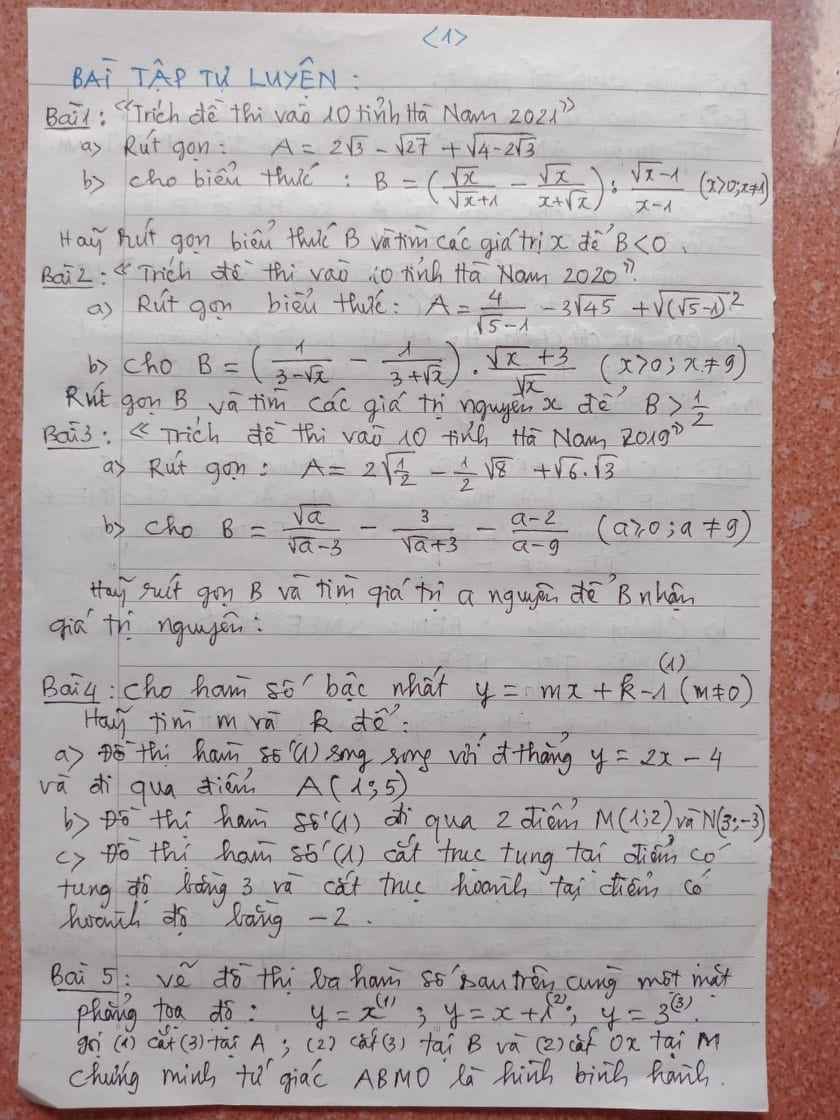 <1>
BÀI TẬP TỰ LUYỆN :
Bài 1 : "Trích đề thi vào 10 tỉnh Hà Nam 2021"
a> Rút gọn : A = 2√3 - √27 + √(4-2√3)
b> cho biểu thức : B = (√x/(√x+1) - √x/(x+√x)) : (√x-1)/(x-1) (x>0; x≠1)
Hãy rút gọn biểu thức B và tìm các giá trị x để B<0.
Bài 2 : "Trích đề thi vào 10 tỉnh Hà Nam 2020".
a> Rút gọn biểu thức : A = 4/(√5-1) - 3√45 + √((√5-1)²)
b> cho B = (1/(3-√x) - 1/(3+√x)) . (√x+3)/√x (x>0; x≠9)
Rút gọn B và tìm các giá trị nguyên x để B > 1/2
Bài 3 : "Trích đề thi vào 10 tỉnh Hà Nam 2019"
a> Rút gọn : A = 2√(1/2) - 1/2 √8 + √6.√3
b> cho B = √a/(√a-3) - 3/(√a+3) - (a-2)/(a-9) (a≥0; a≠9)
Hãy rút gọn B và tìm giá trị a nguyên để B nhận
giá trị nguyên :
Bài 4 : cho hàm số bậc nhất y = mx + k-1 (1) (m≠0)
Hãy tìm m và k để :
a> Đồ thị hàm số (1) song song với đ thẳng y = 2x - 4
và đi qua điểm A(1;5)
b> Đồ thị hàm số (1) đi qua 2 điểm M(1;2) và N(3;-3)
c> Đồ thị hàm số (1) cắt trục tung tại điểm có
tung độ bằng 3 và cắt trục hoành tại điểm có
hoành độ bằng -2.
Bài 5 : vẽ đồ thị ba hàm số sau trên cùng một mặt
phẳng tọa độ : y = x (1) ; y = x+1 (2) ; y = 3 (3).
gọi (1) cắt (3) tại A ; (2) cắt (3) tại B và (2) cắt Ox tại M
chứng minh tứ giác ABMO là hình bình hành.